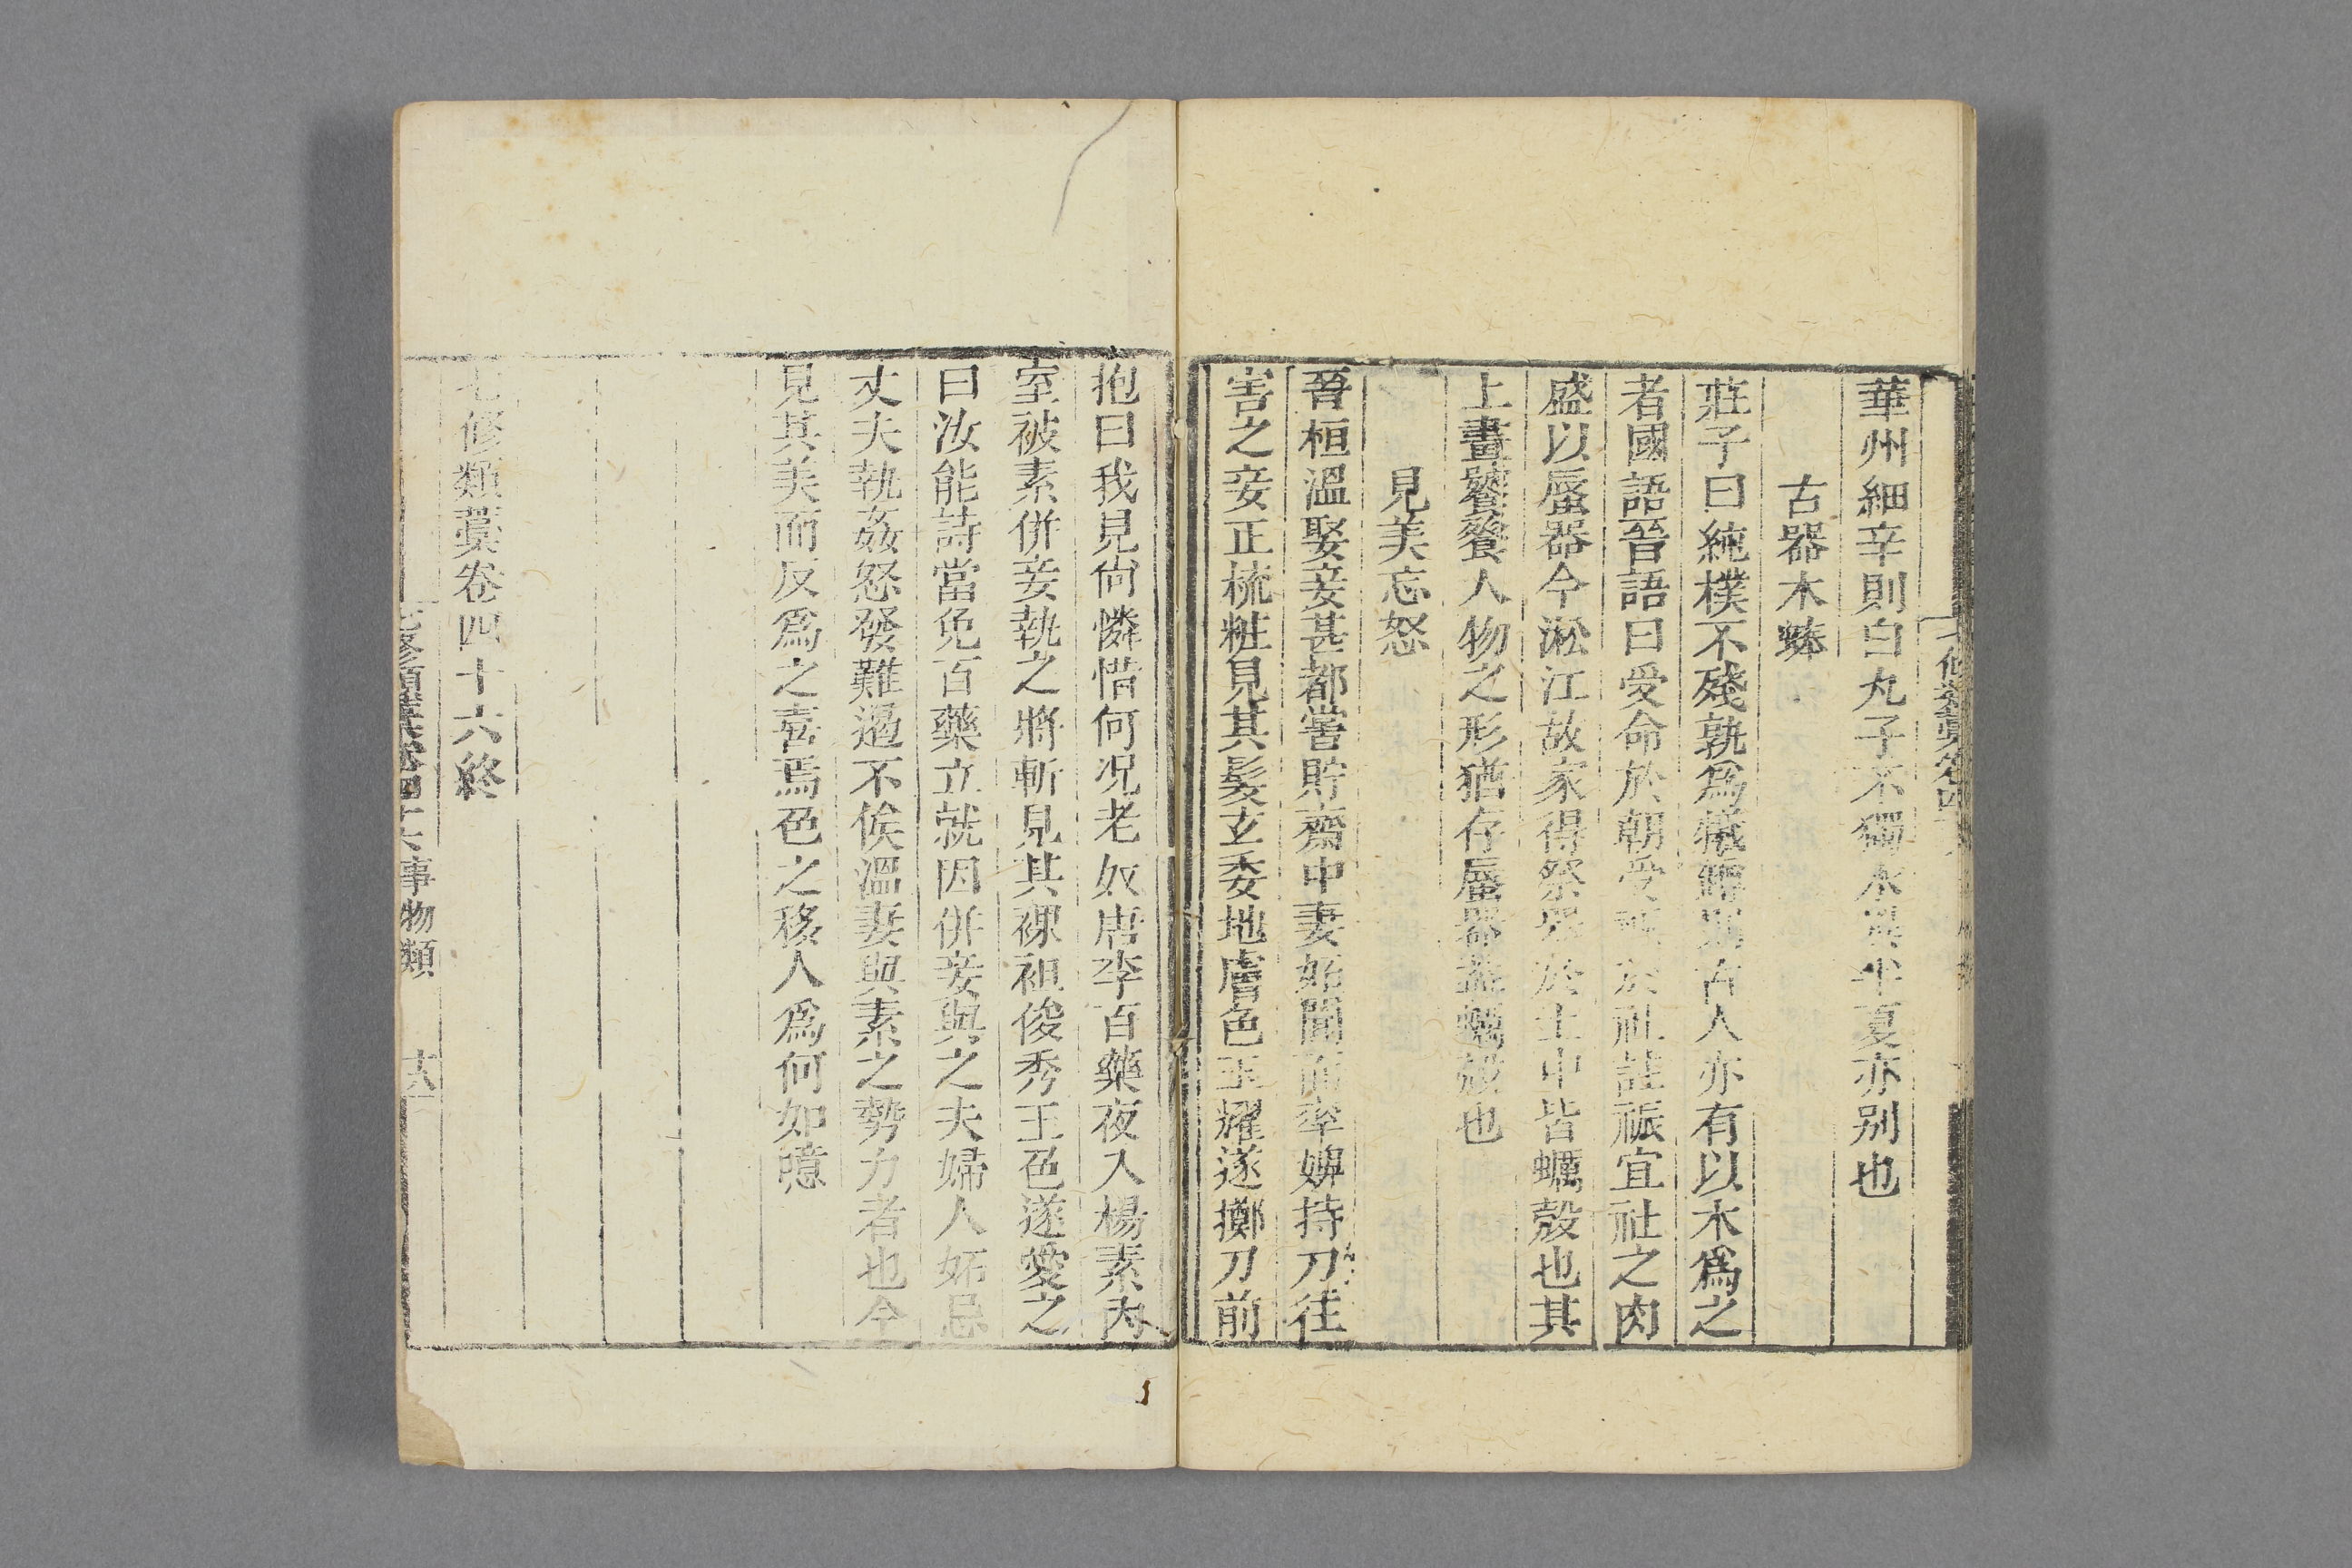 華州細辛則白丸子不獨水

半夏亦别也
古器木蜯
莊子曰純樸不殘孰爲犧罇則古人亦有以木爲之
者國語晉語曰受命於朝受脤於社註脤宜社之肉
盛以蜃器今淞江故家得祭器於土中皆蠣殼也其
上畫饕餮人物之形猶存蜃器蓋蠣殼也
見美忘怒
晉桓溫娶妾甚都嘗貯齋中妻妬聞而率婢持刀往
害之妾正梳粧見其髮玄委地膚色玉耀遂擲刀前
抱曰我見尙憐惜何况老奴唐李百藥夜入楊素內
室被素併妾執之將斬見其裸袒俊秀玉色遂愛之
曰汝能詩當免百藥立就因併妾與之夫婦人妬忌
丈夫執姦怒發難遏不俟溫妻與素之勢力者也今
見其美而反爲之喜焉色之移人爲何如噫
七修類藁卷四十六終
七修類藁卷四十六 事物類 十六